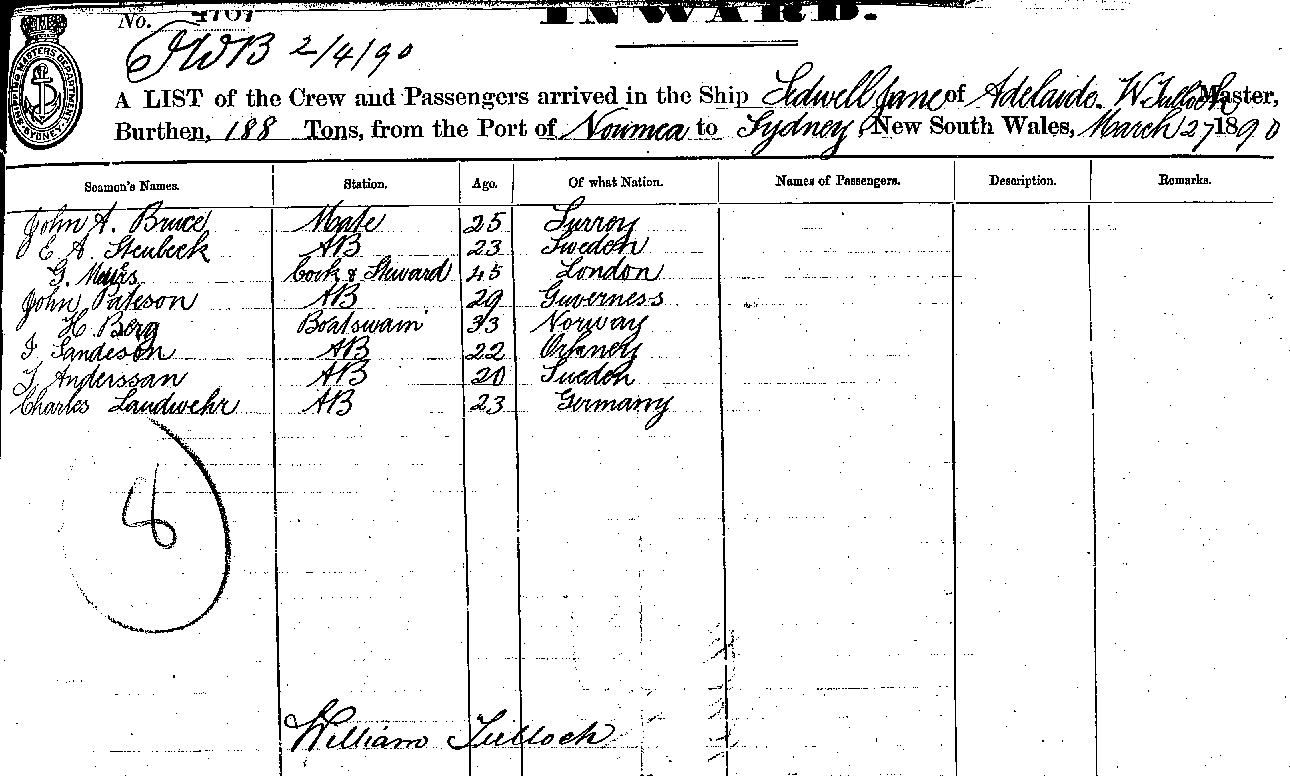 No. 4767 INWARD.
JWB 2/4/90
A LIST of the Crew and Passengers arrived in the Ship Sedwell Jane of Adelaide. W Tulloch Master,
Burthen, 188 Tons, from the Port of Noumea to Sydney, New South Wales, March 27 1890
Seamen's Names. Station. Age. Of what Nation. Names of Passengers. Description. Remarks.
John A. Bruce Mate 25 Surrey
E A Steubeck AB 23 Sweden
G. Cook & Steward 45 London
John Pateson AB 29 Guverness
H. Berg Boatswain 33 Norway
Sandeson AB 22 Orkney
Anderssan AB 20 Sueden
Charles Landwehr AB 23 Germany
8
William Tulloch